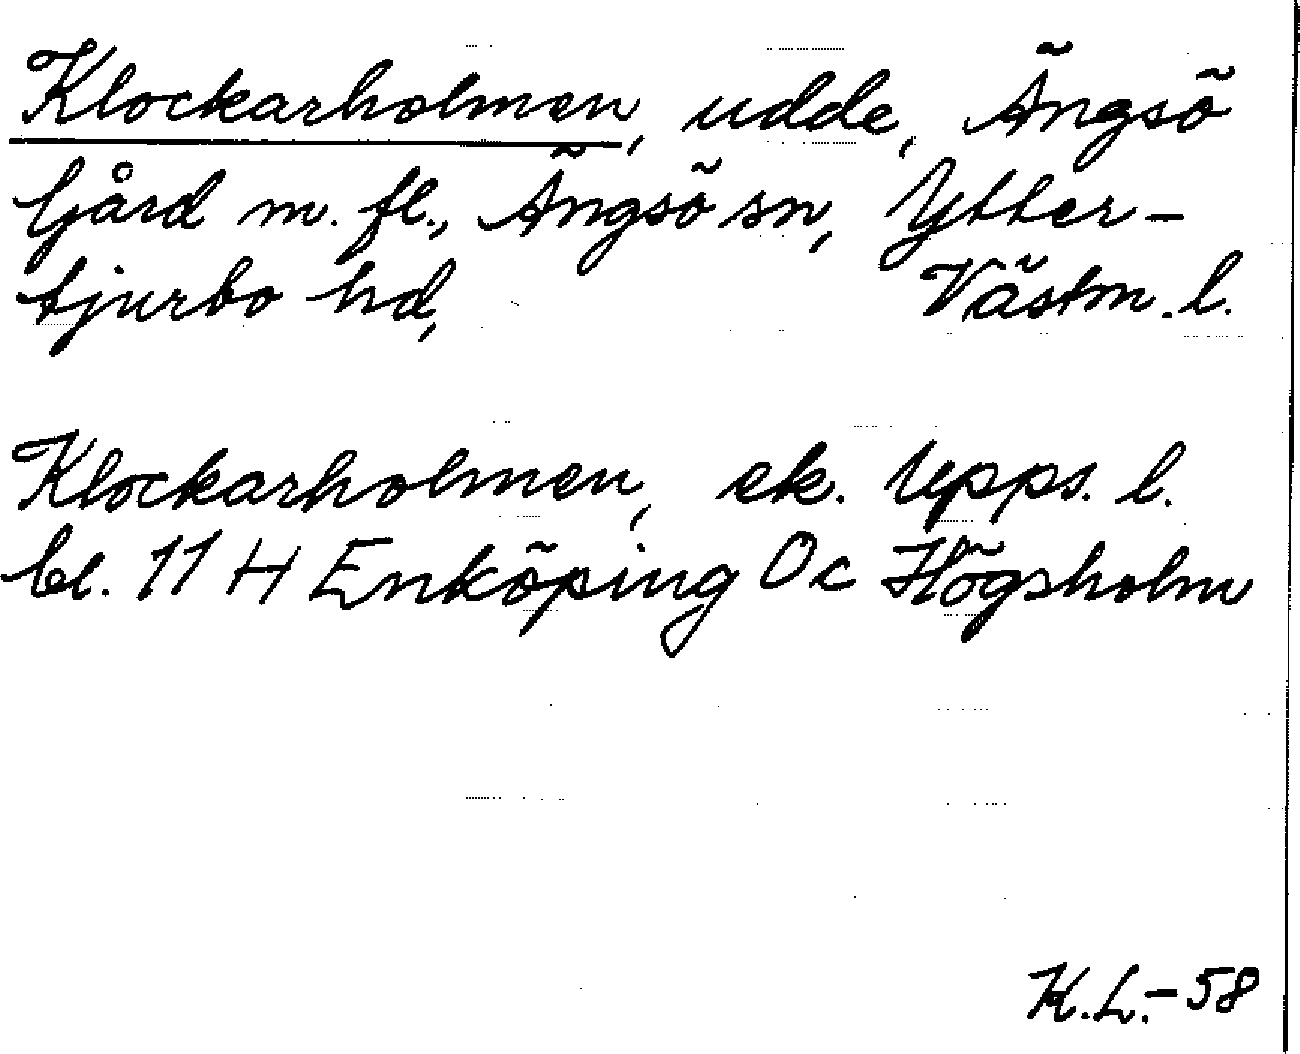 Klockarholmen, udde, Ängsö
Gård m. fl., Ängsö sn, Ytter-
tjurbo hd, Västm. l.
Klockarholmen, ek. Upps. l.
bl. 11 H Enköping Oc Högsholm
K.L.-58